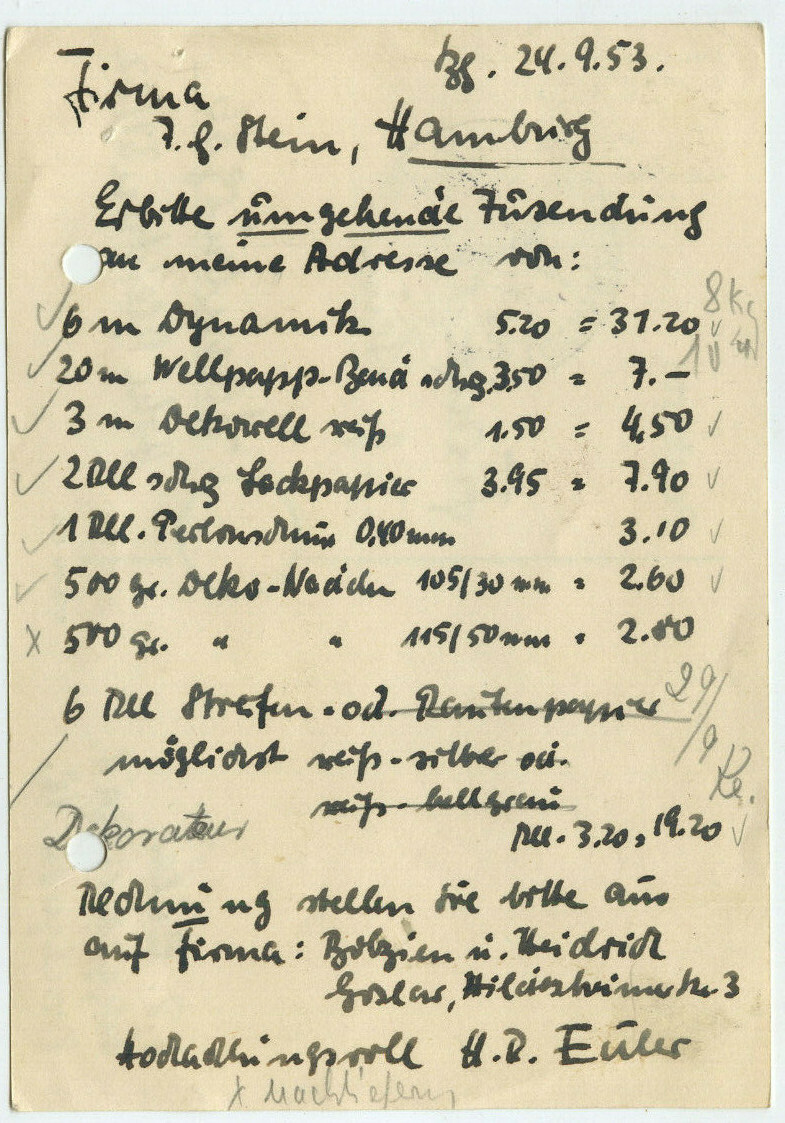 Firma
Bzg. 24.9.53.
J. H. Stein, Hamburg
Erbitte umgehende Zusendung
an meine Adresse von:
6 m Dynamik 5.20 = 31.20
8 Kg
20 m Wellpapp- schwg. 3.50 = 7.—
3 m Dekowell weiß 1.50 = 4,50
2 Rll schwg Lackpapier 3.95 = 7.90
1 Rll. Perlonschnur 0,40 mm 3.10
500 gr. Deko-Nadeln 105/30 mm = 2.60
x 500 gr. " " 115/50 mm = 2.80
6 Rll Streifen- od. Rautenpapier
29/9
möglichst weiß-silber od.
Ke.
weiß-hellgrau
Dekorateur
Rll. 3.20 = 19.20
Rechnung stellen Sie bitte aus
auf Firma: Bolzien u. Heidrich
Goslar, Hildesheimerstr. 3
Hochachtungsvoll H. R. Euler
x Nachliefern